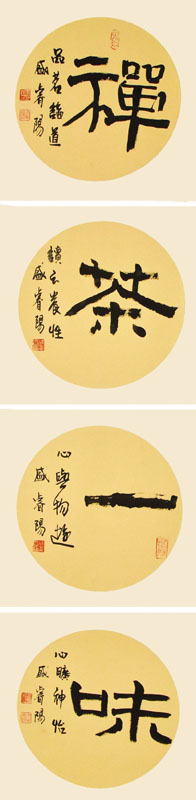 禪
品茗論道
盛睿陽
茶
讀養性
盛睿陽
一
心與物遊
盛睿陽
味
心曠神怡
盛睿陽